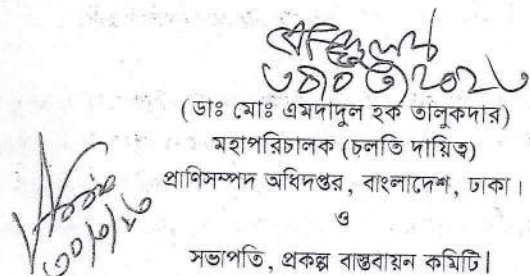 (ডাঃ মোঃ এমদাদুল হক তালুকদার)
মহাপরিচালক (চলতি দায়িত্ব)
প্রাণিসম্পদ অধিদপ্তর, বাংলাদেশ, ঢাকা।
ও
সভাপতি, প্রকল্প বাস্তবায়ন কমিটি।